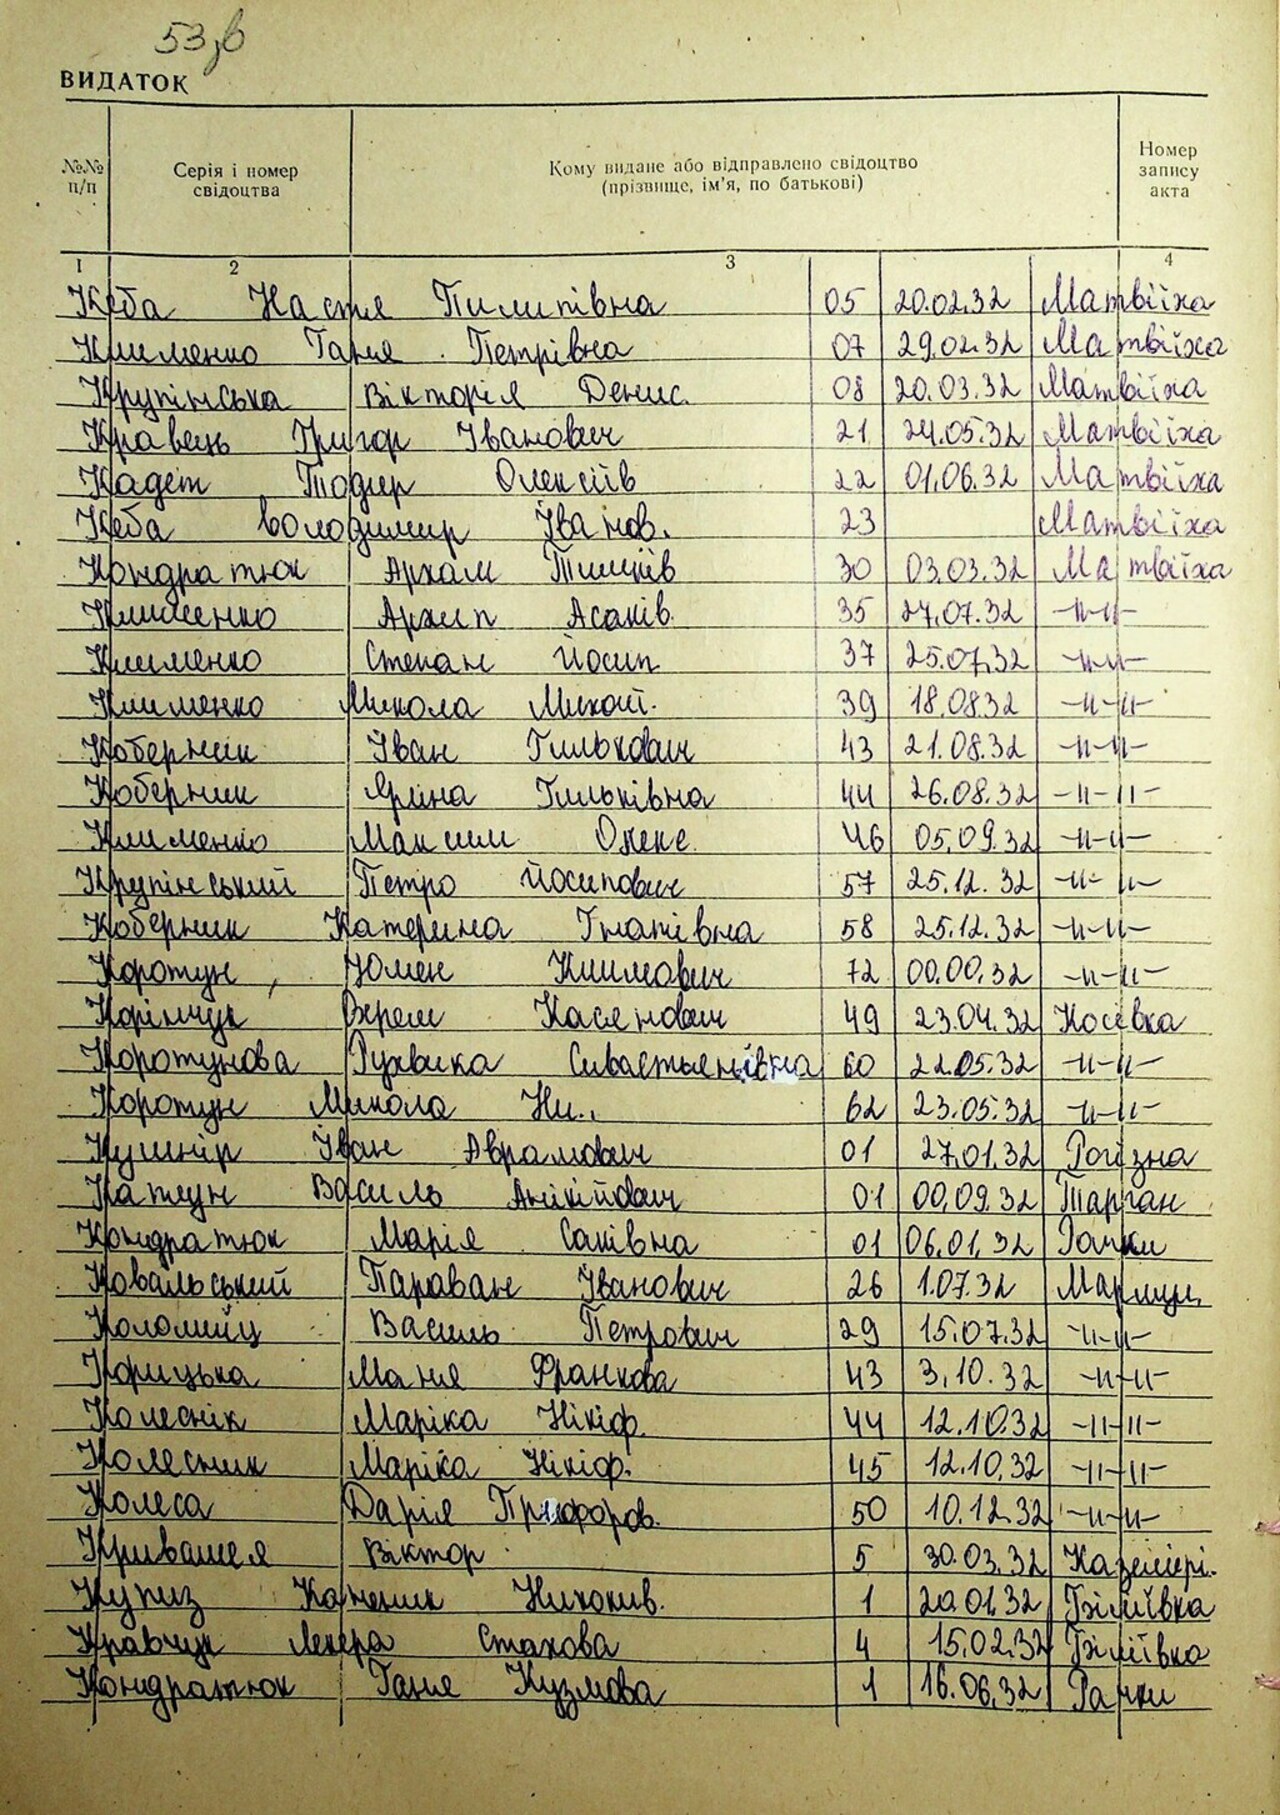 53зв
ВИДАТОК
№№ п/п
Серія і номер свідоцтва
Кому видане або відправлено свідоцтво (прізвище, ім'я, по батькові)
Номер запису акта
1 2 3 4
Кеба Настя Пилипівна 05 20.02.32 Матвіїха
Клименко Ганя Петрівна 07 29.02.32 Матвіїха
Крупінська Вікторія Денис. 08 20.03.32 Матвіїха
Кравець Григор Іванович 21 24.05.32 Матвіїха
Кадет Тодир Олексіїв 22 01.06.32 Матвіїха
Кеба Володимир Іванов. 23 Матвіїха
Кондратюк Архам 30 03.03.32 Матвіїха
Клименко Архип Асаків. 35 27.07.32 -"-"-
Клименко Степан Йосип 37 25.07.32 -"-"-
Клименко Микола Михай. 39 18.08.32 -"-"-
Коберник Іван Гилькович 43 21.08.32 -"-"-
Коберник Ярина Гильківна 44 26.08.32 -"-"-
Клименко Максим Олекс. 46 05.09.32 -"-"-
Крупінський Петро Йосипович 57 25.12.32 -"-"-
Коберник Катерина Гнатівна 58 25.12.32 -"-"-
Коротун, Юмен Климович 72 00.00.32 -"-"-
Корінчук Верем Касянович 49 23.04.32 Косівка
Коротунова Рухвика Сивастьянівна 60 22.05.32 -"-"-
Коротун Микола Ни.. 62 23.05.32 -"-"-
Кушнір Іван Аврамович 01 27.01.32 Рогізна
Катун Василь Анікійович 01 00.09.32 Тарган
Кондратюк Марія Саківна 01 06.01.32 Рачки
Ковальський Параван Іванович 26 1.07.32
Коломієць Василь Петрович 29 15.07.32 -"-"-
Корицька Маня Франкова 43 3.10.32 -"-"-
Колеснік Маріка Нікіф. 44 12.10.32 -"-"-
Колесник Маріка Нікіф. 45 12.10.32 -"-"-
Колеса Дарія 50 10.12.32 -"-"-
Кривашея Віктор 5 30.03.32 Каземірі.
Купиз 1 20.01.32 Гзіліївка
Кравчук Лекера Стахова 4 15.02.32 Гзіліївка
Кондратюк Ганя Кузмова 1 16.06.32 Рачки